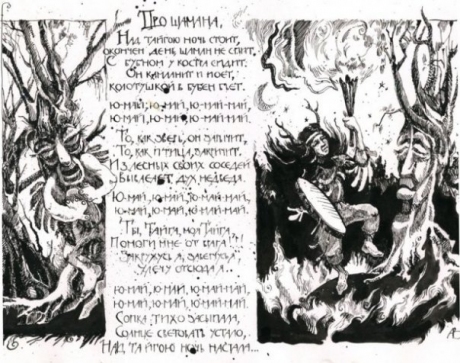 Про шамана.
Над тайгою ночь стоит,
Окончен день, шаман не спит,
С бубном у костра сидит.
Он камланит и поет,
Колотушкой в бубен бьет.
Ю-май, ю-май, ю-май-май,
Ю-май, ю-май, ю-май-май.
То, как зверь, он зарычит,
То, как птица, закричит,
Из лесных своих соседей
Вызывает дух медведя.
Ю-май, ю-май, ю-май-май,
Ю-май, ю-май, ю-май-май.
Ты, тайга, моя тайга,
Помоги мне от врага!!!
Закружусь я,
Улечу отсюда я..
Ю-май, ю-май, ю-май-май,
Ю-май, ю-май, ю-май-май.
Сопка тихо засыпала,
Солнце световать устало,
Над тайгою ночь настала...